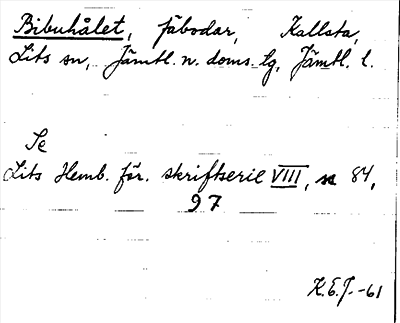 Bibuhålet, fäbodar, Kallsta,
Lits sn, Jämtl. n. doms. lg, Jämtl. l.
Se
Lits Hemb. för. skriftserie VIII, 84,
97
K.E.J. -61